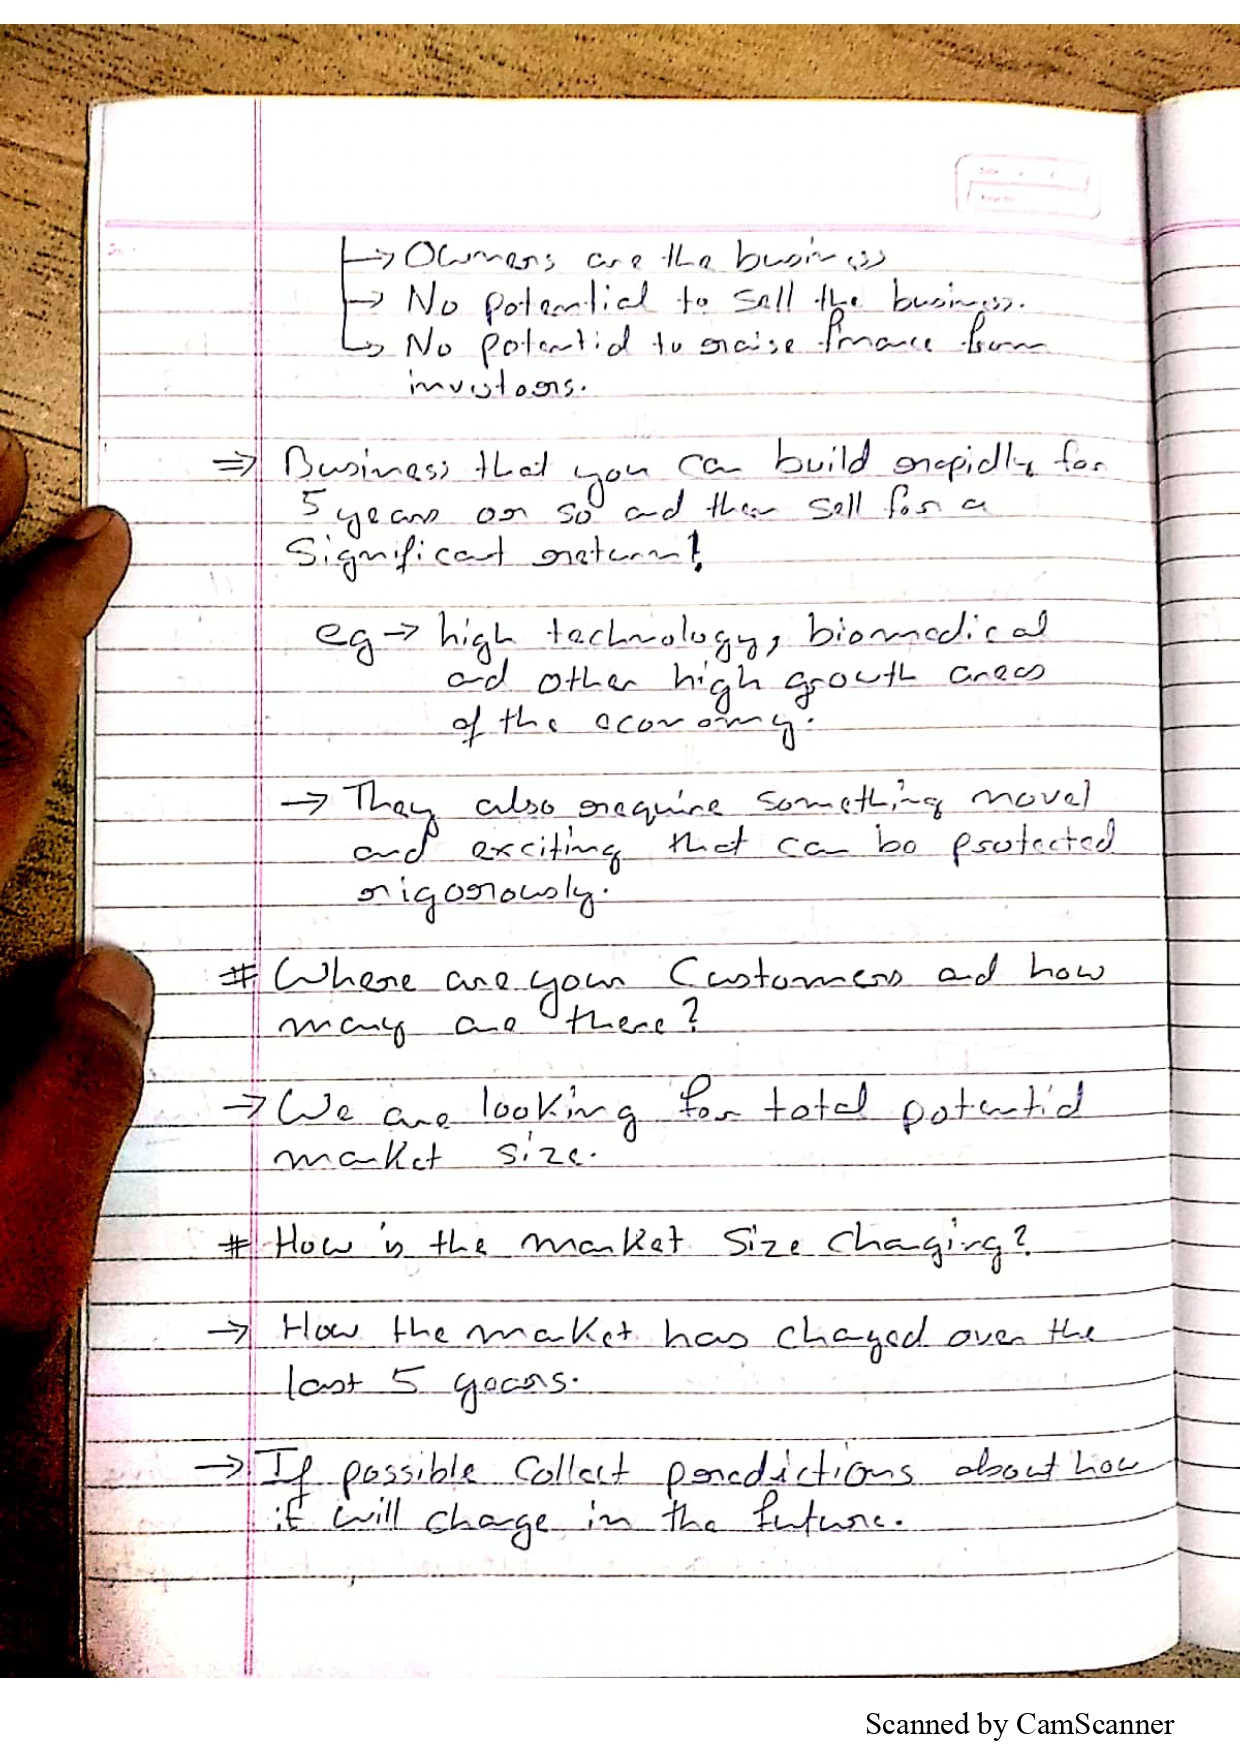 → Owners are the business
→ No potential to sell the business.
→ No potential to raise finance from
investors.
⇒ Business that you can build rapidly for
5 years or so and then sell for a
significant return!
eg → high technology, biomedical
and other high growth areas
of the economy.
→ They also require something novel
and exciting that can be protected
rigorously.
# Where are your Customers and how
many are there?
→ We are looking for total potential
market size.
# How is the market size changing?
→ How the market has changed over the
last 5 years.
→ If possible collect predictions about how
it will change in the future.
Scanned by CamScanner